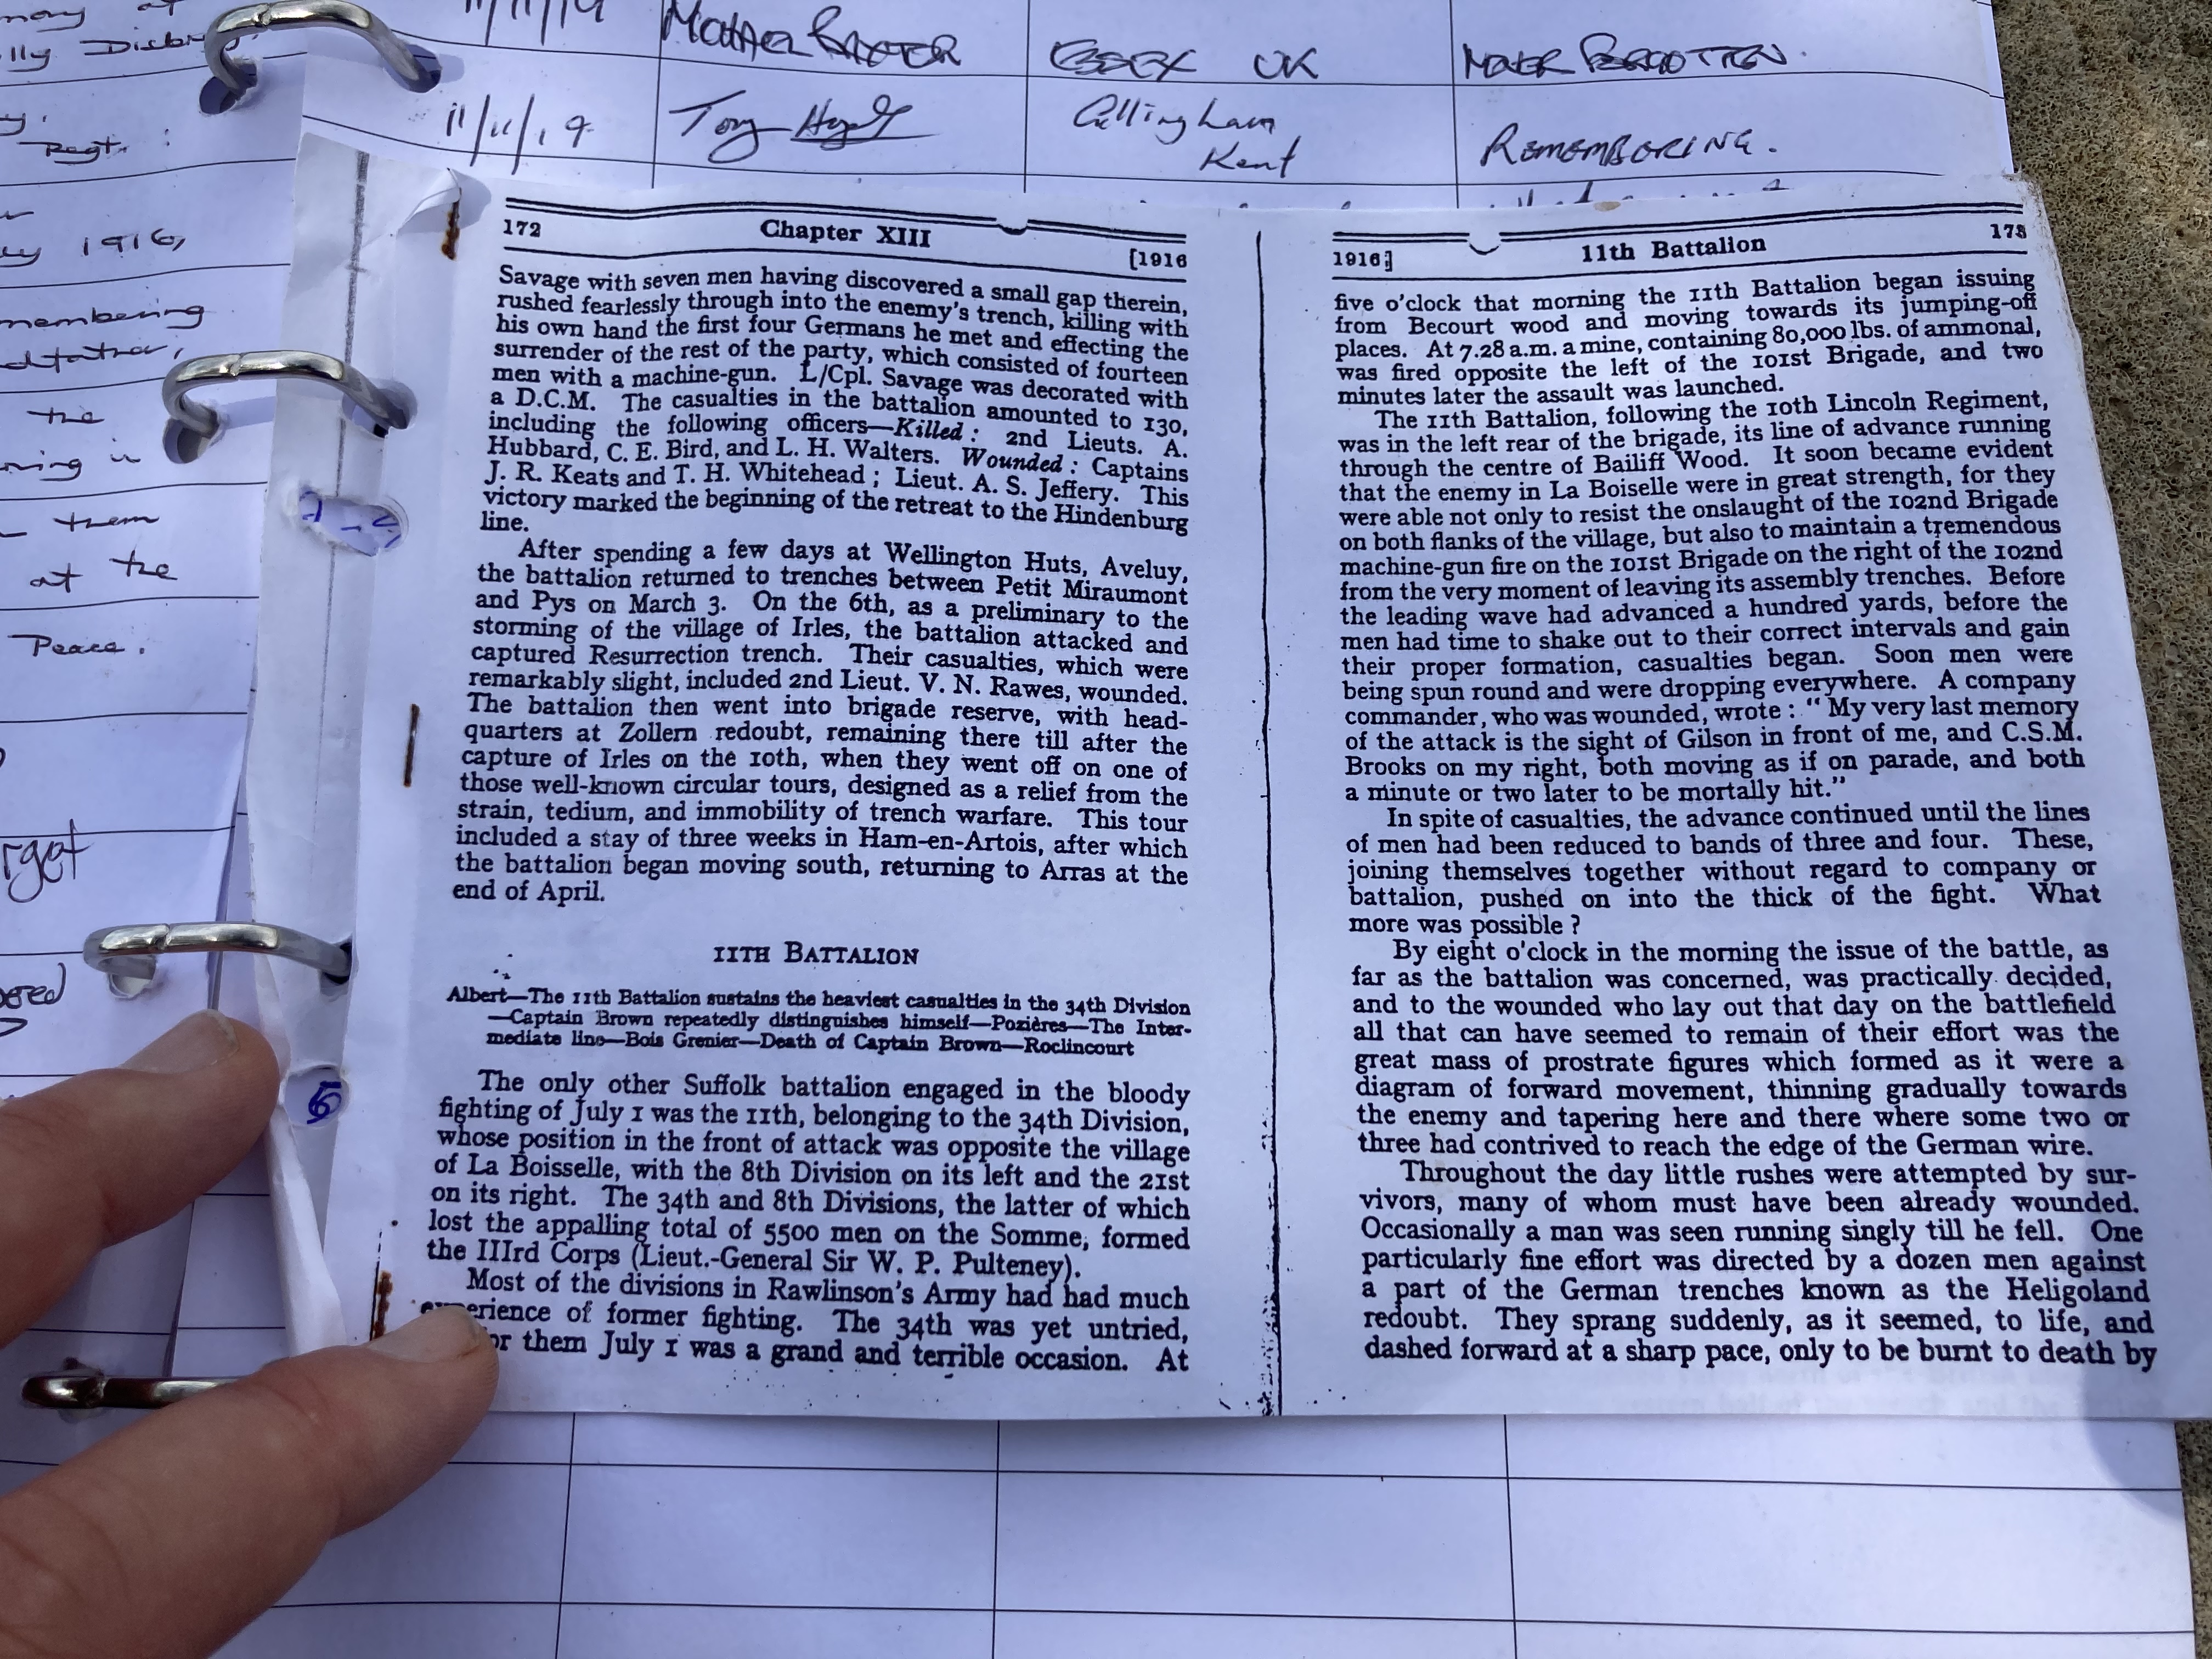 11/11/19
ESSEX UK
11/11/19
Tony
Gillingham
Kent
REMEMBERING.
Regt.
1916,
membering
the
them
at the
Peace.
172 Chapter XIII [1916
Savage with seven men having discovered a small gap therein,
rushed fearlessly through into the enemy's trench, killing with
his own hand the first four Germans he met and effecting the
surrender of the rest of the party, which consisted of fourteen
men with a machine-gun. L/Cpl. Savage was decorated with
a D.C.M. The casualties in the battalion amounted to 130,
including the following officers—Killed: 2nd Lieuts. A.
Hubbard, C. E. Bird, and L. H. Walters. Wounded: Captains
J. R. Keats and T. H. Whitehead; Lieut. A. S. Jeffery. This
victory marked the beginning of the retreat to the Hindenburg
line.
After spending a few days at Wellington Huts, Aveluy,
the battalion returned to trenches between Petit Miraumont
and Pys on March 3. On the 6th, as a preliminary to the
storming of the village of Irles, the battalion attacked and
captured Resurrection trench. Their casualties, which were
remarkably slight, included 2nd Lieut. V. N. Rawes, wounded.
The battalion then went into brigade reserve, with head-
quarters at Zollern redoubt, remaining there till after the
capture of Irles on the 10th, when they went off on one of
those well-known circular tours, designed as a relief from the
strain, tedium, and immobility of trench warfare. This tour
included a stay of three weeks in Ham-en-Artois, after which
the battalion began moving south, returning to Arras at the
end of April.
11TH BATTALION
Albert—The 11th Battalion sustains the heaviest casualties in the 34th Division
—Captain Brown repeatedly distinguishes himself—Pozières—The Inter-
mediate line—Bois Grenier—Death of Captain Brown—Roclincourt
The only other Suffolk battalion engaged in the bloody
fighting of July 1 was the 11th, belonging to the 34th Division,
whose position in the front of attack was opposite the village
of La Boisselle, with the 8th Division on its left and the 21st
on its right. The 34th and 8th Divisions, the latter of which
lost the appalling total of 5500 men on the Somme, formed
the IIIrd Corps (Lieut.-General Sir W. P. Pulteney).
Most of the divisions in Rawlinson's Army had had much
experience of former fighting. The 34th was yet untried,
or them July 1 was a grand and terrible occasion. At
1916] 11th Battalion 173
five o'clock that morning the 11th Battalion began issuing
from Becourt wood and moving towards its jumping-off
places. At 7.28 a.m. a mine, containing 80,000 lbs. of ammonal,
was fired opposite the left of the 101st Brigade, and two
minutes later the assault was launched.
The 11th Battalion, following the 10th Lincoln Regiment,
was in the left rear of the brigade, its line of advance running
through the centre of Bailiff Wood. It soon became evident
that the enemy in La Boiselle were in great strength, for they
were able not only to resist the onslaught of the 102nd Brigade
on both flanks of the village, but also to maintain a tremendous
machine-gun fire on the 101st Brigade on the right of the 102nd
from the very moment of leaving its assembly trenches. Before
the leading wave had advanced a hundred yards, before the
men had time to shake out to their correct intervals and gain
their proper formation, casualties began. Soon men were
being spun round and were dropping everywhere. A company
commander, who was wounded, wrote: "My very last memory
of the attack is the sight of Gilson in front of me, and C.S.M.
Brooks on my right, both moving as if on parade, and both
a minute or two later to be mortally hit."
In spite of casualties, the advance continued until the lines
of men had been reduced to bands of three and four. These,
joining themselves together without regard to company or
battalion, pushed on into the thick of the fight. What
more was possible?
By eight o'clock in the morning the issue of the battle, as
far as the battalion was concerned, was practically decided,
and to the wounded who lay out that day on the battlefield
all that can have seemed to remain of their effort was the
great mass of prostrate figures which formed as it were a
diagram of forward movement, thinning gradually towards
the enemy and tapering here and there where some two or
three had contrived to reach the edge of the German wire.
Throughout the day little rushes were attempted by sur-
vivors, many of whom must have been already wounded.
Occasionally a man was seen running singly till he fell. One
particularly fine effort was directed by a dozen men against
a part of the German trenches known as the Heligoland
redoubt. They sprang suddenly, as it seemed, to life, and
dashed forward at a sharp pace, only to be burnt to death by